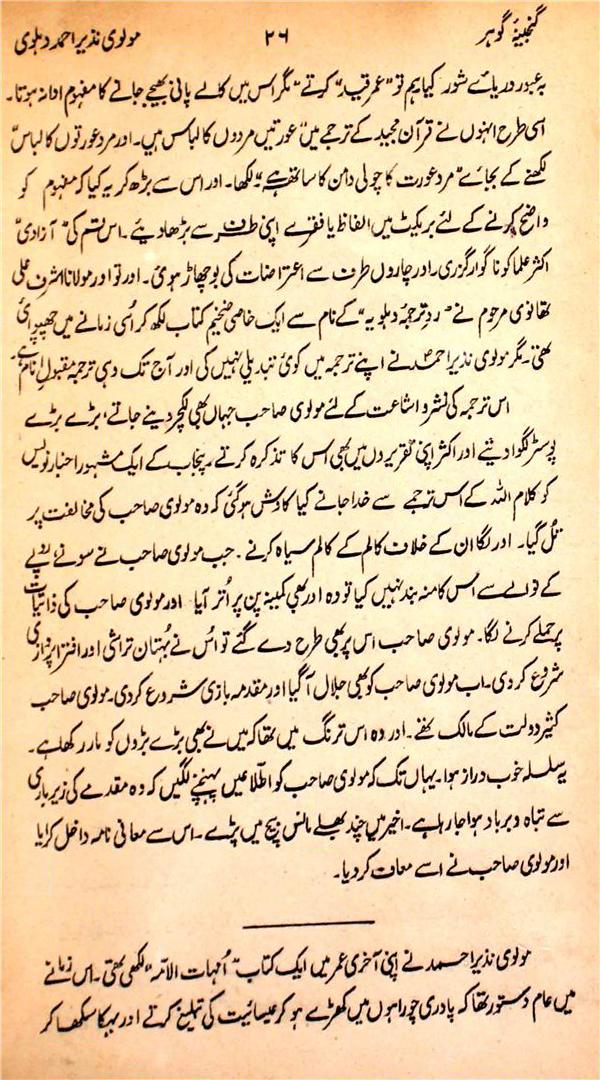 گنجینۂ گوہر ۲۶ مولوی نذیر احمد دہلوی
بہ عبور دریائے شور کیا ہم تو "عمر قید" کرتے" مگر اس میں کالے پانی بھیجے جانے کا مفہوم ادا نہ ہوتا۔
اسی طرح انہوں نے قرآن مجید کے ترجمے میں "عورتیں مردوں کا لباس ہیں۔ اور مرد عورتوں کا لباس"
لکھنے کے بجائے "مرد عورت کا چولی دامن کا ساتھ ہے" لکھا۔ اور اس سے بڑھ کر یہ کیا کہ مفہوم کو
واضح کرنے کے لئے بریکٹ میں الفاظ یا فقرے اپنی طرف سے بڑھا دیئے۔ اس قسم کی "آزادی"
اکثر علما کو ناگوار گزری اور چاروں طرف سے اعتراضات کی بوچھاڑ ہوئی۔ اور تو اور مولانا اشرف علی
تھانوی مرحوم نے "ردِ ترجمۂ دہلویہ" کے نام سے ایک خاصی ضخیم کتاب لکھ کر اُسی زمانے میں چھپوائی
تھی۔ مگر مولوی نذیر احمد نے اپنے ترجمہ میں کوئی تبدیلی نہیں کی اور آج تک وہی ترجمہ مقبولِ انام ہے۔
اس ترجمہ کی نشر و اشاعت کے لئے مولوی صاحب جہاں بھی لکچر دینے جاتے، بڑے بڑے
پوسٹر لگوا دیتے اور اکثر اپنی تقریروں میں بھی اس کا تذکرہ کرتے۔ پنجاب کے ایک مشہور اخبار نویس
کو کلام اللہ کے اس ترجمے سے خدا جانے کیا کاوش ہو گئی کہ وہ مولوی صاحب کی مخالفت پر
تُل گیا۔ اور لگا ان کے خلاف کالم کے کالم سیاہ کرنے۔ جب مولوی صاحب نے سونے روپے
کے نوالے سے اُس کا منہ بند نہیں کیا تو وہ اور بھی کمینہ پن پر اُتر آیا اور مولوی صاحب کی ذاتیات
پر حملے کرنے لگا۔ مولوی صاحب اس پر بھی طرح دے گئے تو اُس نے بُہتان تراشی اور افترا پردازی
شروع کر دی۔ اب مولوی صاحب کو بھی جلال آ گیا اور مقدمہ بازی شروع کر دی۔ مولوی صاحب
کثیر دولت کے مالک تھے۔ اور وہ اس ترنگ میں تھا کہ میں نے بھی بڑے بڑوں کو مار رکھا ہے۔
یہ سلسلہ خوب دراز ہوا۔ یہاں تک کہ مولوی صاحب کو اطلاعیں پہنچنے لگیں کہ وہ مقدمے کی زیر باری
سے تباہ و برباد ہوا جا رہا ہے۔ اخیر میں چند بھلے مانس بیچ میں پڑے۔ اس سے معافی نامہ داخل کرایا
اور مولوی صاحب نے اسے معاف کر دیا۔
مولوی نذیر احمد نے اپنی آخری عمر میں ایک کتاب "اُمہات الامّہ" لکھی تھی۔ اس زمانے
میں عام دستور تھا کہ پادری چوراہوں میں کھڑے ہو کر عیسائیت کی تبلیغ کرتے اور بہکا سکھا کر